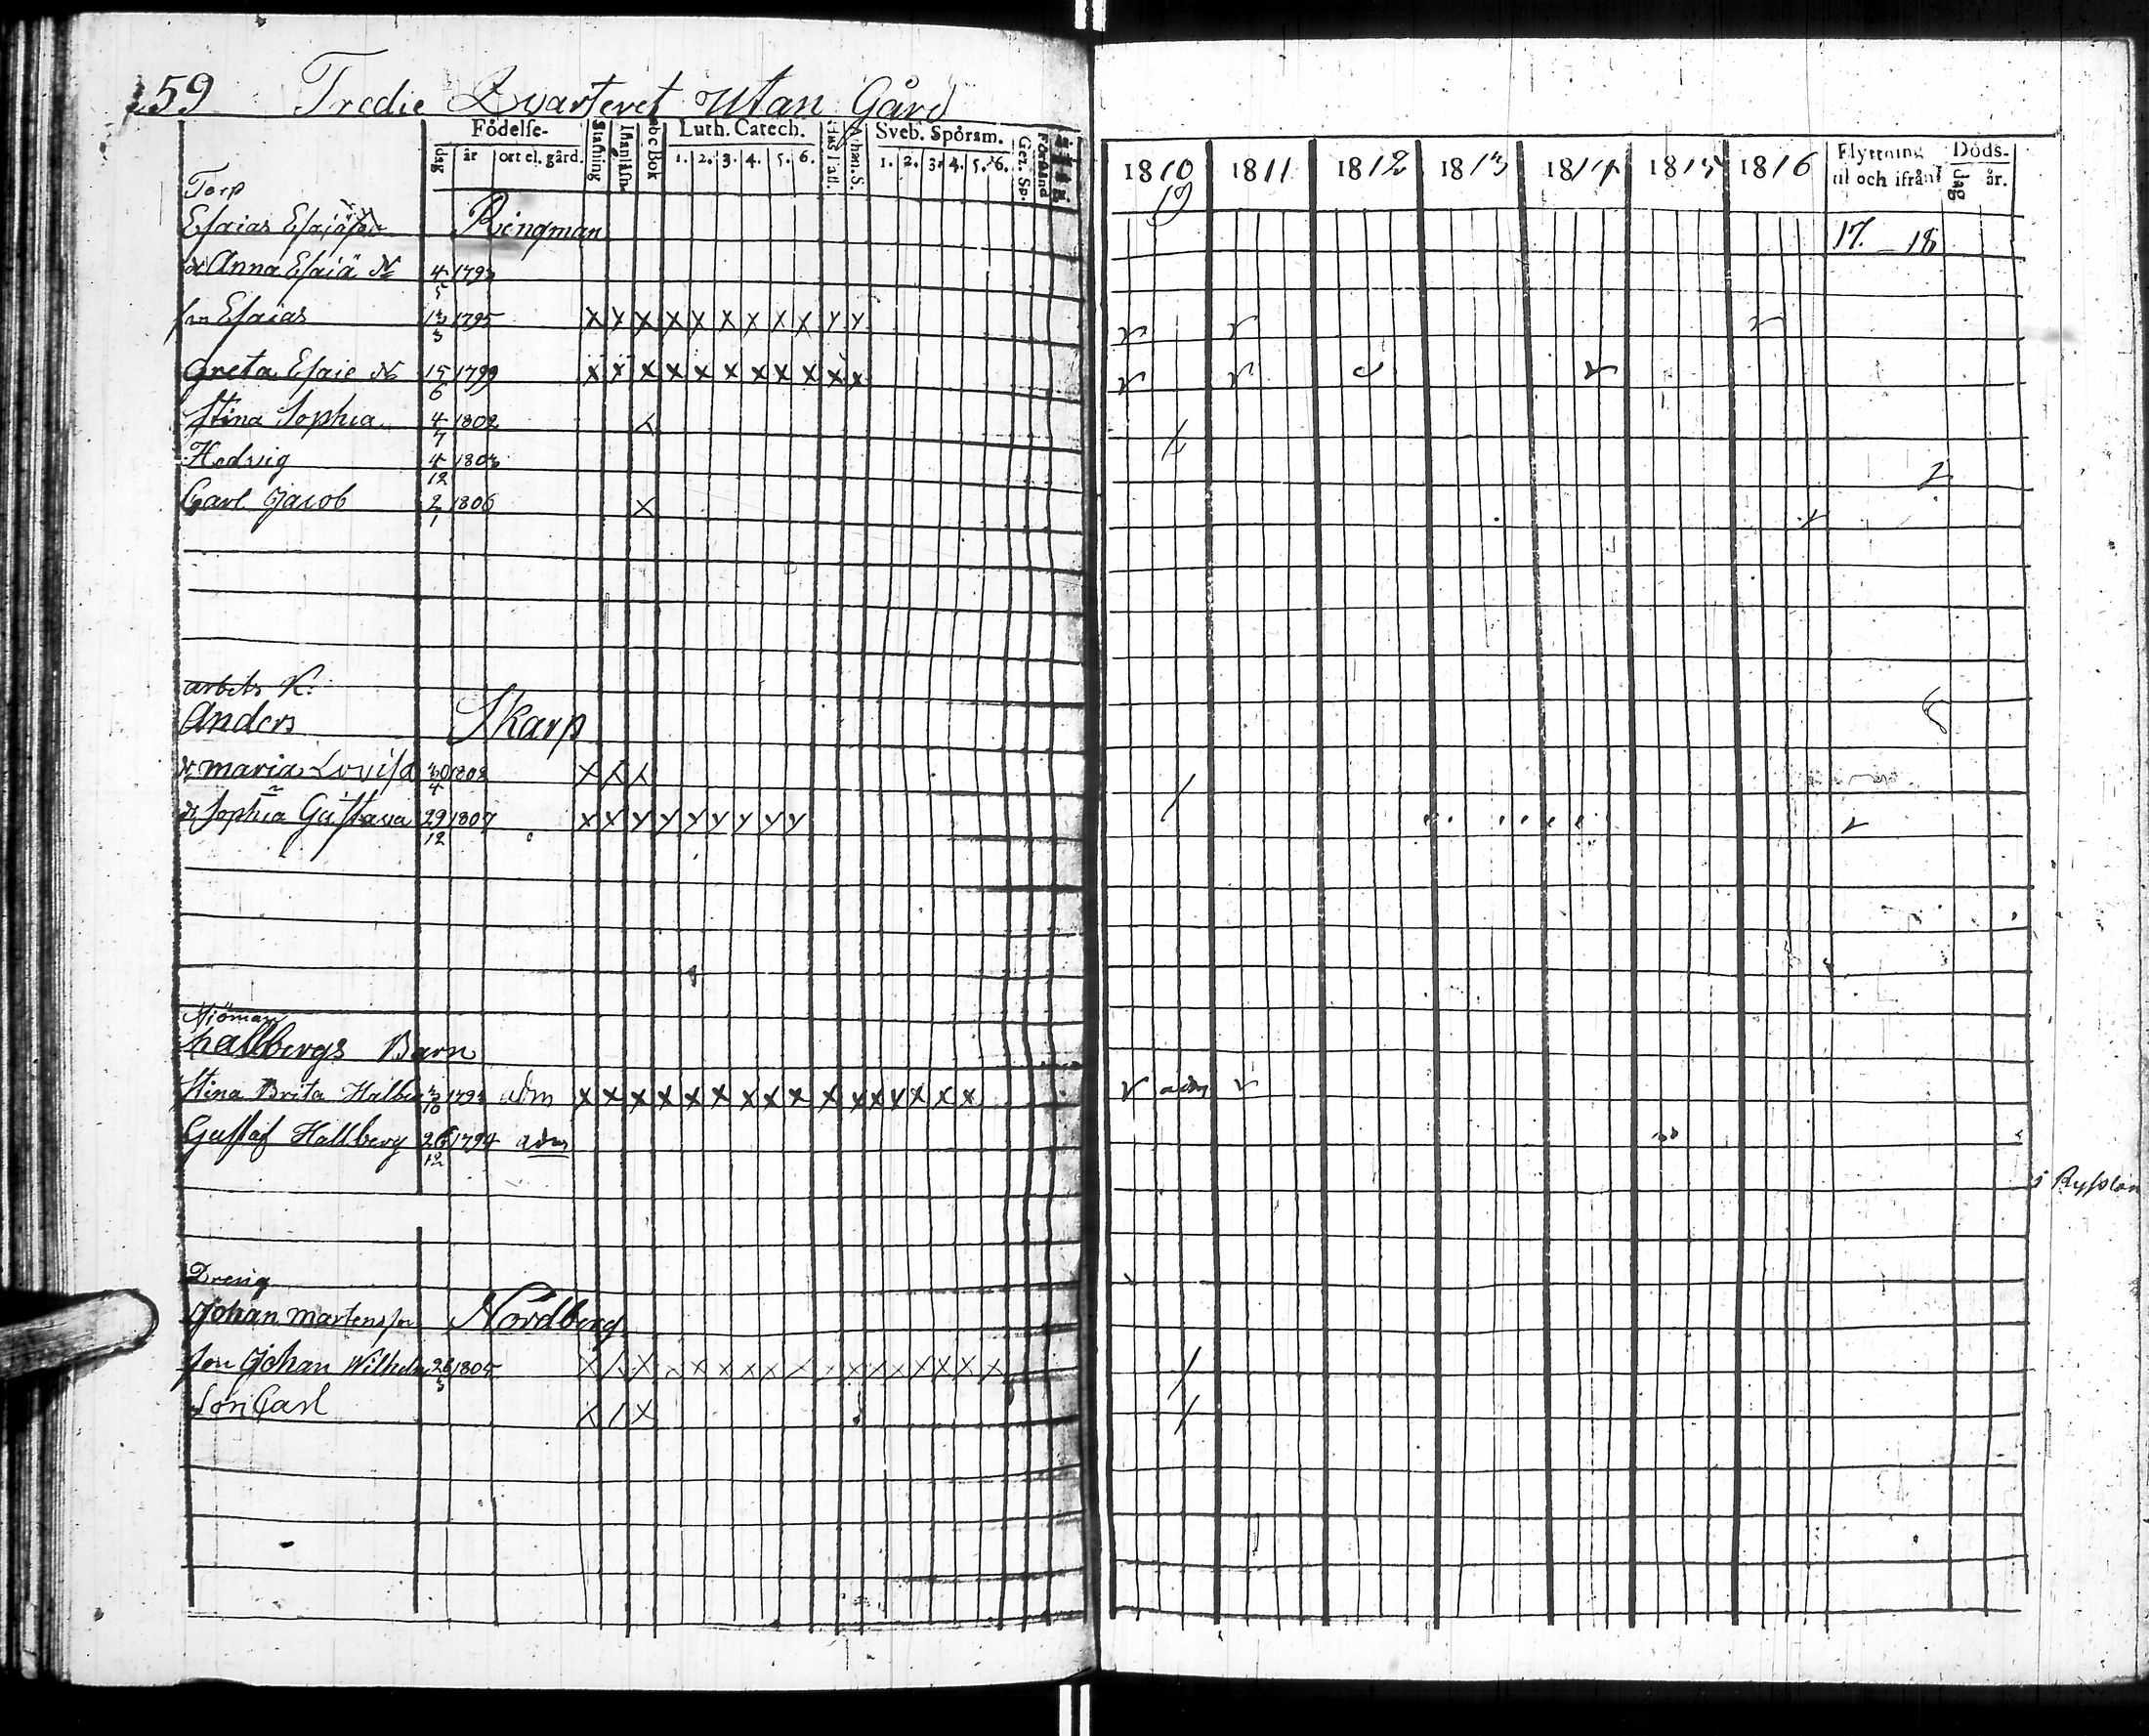 159 Tredie Qvarteret utan Gård
Födelse- Stafning Inanläsn. Abc Bok Luth. Catech. Athan. S. Sveb. Spörsm. Ger. Sp. Förstånd
dag år ort el. gård. 1. 2. 3. 4. 5. 6. 1. 2. 3. 4. 5. 6.
1810 1811 1812 1813 1814 1815 1816 Flyttning til och ifrån Döds- dag år.
Torp
Esaias Ringman 17. 18
Anna Esaiä 4/5 1793
son Esaias 13/3 1795 X X X X X X X X X Y Y
Greta Esaie 15/6 1799 X X X X X X X X X X X
Stina Sophia 4/7 1802
Hedvig 4/12 1803 2
Carl Jacob 2/1 1806 X
arbets K.
Anders Skarp
Maria Lovisa 30/4 1802 X X X
Sophia Gustava 29/12 1807 X X Y Y Y Y Y Y Y
Siöman
Hallbergs Barn
Stina Brita 3/10 1793 adm X X X X X X X X X X X X X X X X adm
Gustaf Hallberg 26/12 1794 adm
i Ryssland
Dreng
Johan Martensson Nordberg
son Johan Wilhelm 26/3 1805 X X X X X X X X X X X X X X X X
Son Carl X X X